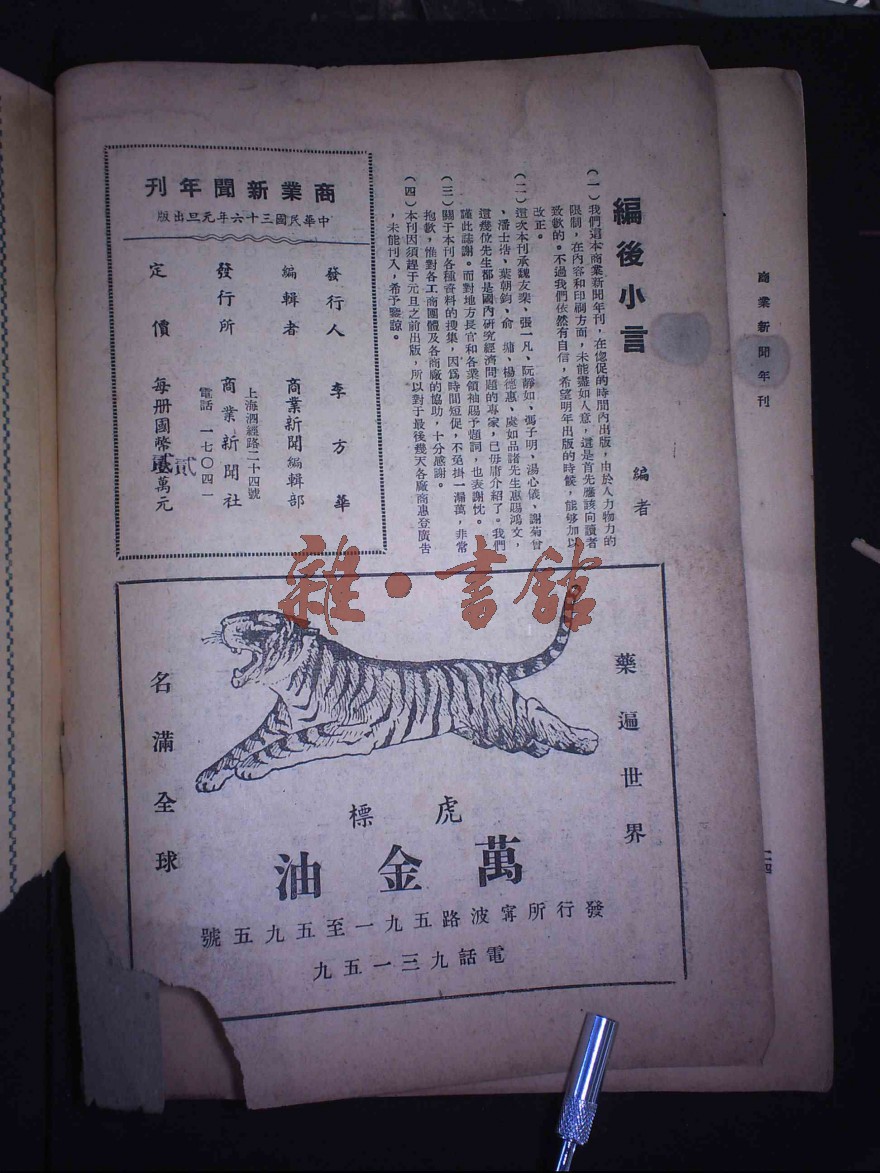 商業新聞年刊
編後小言
編者
(一)我們這本商業新聞年刊，在怱促的時間內出版，由於人力物力的
限制，在內容和印刷方面，未能盡如人意，這是首先應該向讀者
致歉的。不過我們依然有自信，希望明年出版的時候，能够加以
改正。
(二)這次本刊承魏友棐、張一凡、阮靜如、馮子明、湯心儀、謝菊曾
、潘士浩、葉朝鈞、俞墉、楊德惠、處如品諸先生惠賜鴻文，
這幾位先生都是國內研究經濟問題的專家，已毋庸介紹了。我們
謹此誌謝。而對地方長官和各業領袖賜予題詞，也表謝忱。
(三)關于本刊各種資料的搜集，因爲時間短促，不免掛一漏萬，非常
抱歉，惟對各工商團體及各商廠的協助，十分感謝。
(四)本刊因須趕于元旦之前出版，所以對于最後幾天各廠商惠登廣告
，未能刊入，希予鑒諒。
商業新聞年刊
中華民國三十六年元旦出版
發行人 李方華
編輯者 商業新聞編輯部
發行所 商業新聞社
上海泗經路二十四號
電話 一七〇四一
定價 每册國幣貳萬元
貳
雜·書館
藥遍世界
名滿全球
虎標
萬金油
發行所寗波路五九一至五九五號
電話九三一五九